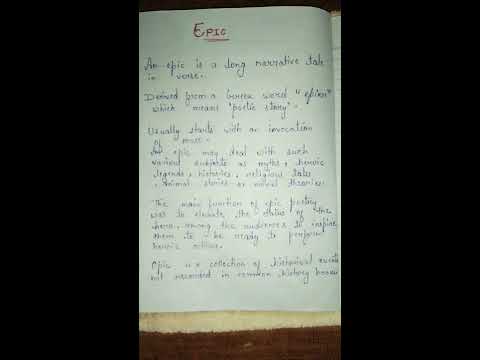 EPIC
An epic is a long narrative tale
in verse.
Derived from a Greek word "epikos"
which means "poetic story".
Usually starts with an invocation
of muse.
An epic may deal with such
various subjects as myths, heroic
legends, histories, religious tales
, animal stories or moral theories.
The main function of epic poetry
was to elevate the status of the
hero among the audiences to inspire
them to be ready to perform
heroic actions.
Epic is a collection of historical events
not recorded in common history books